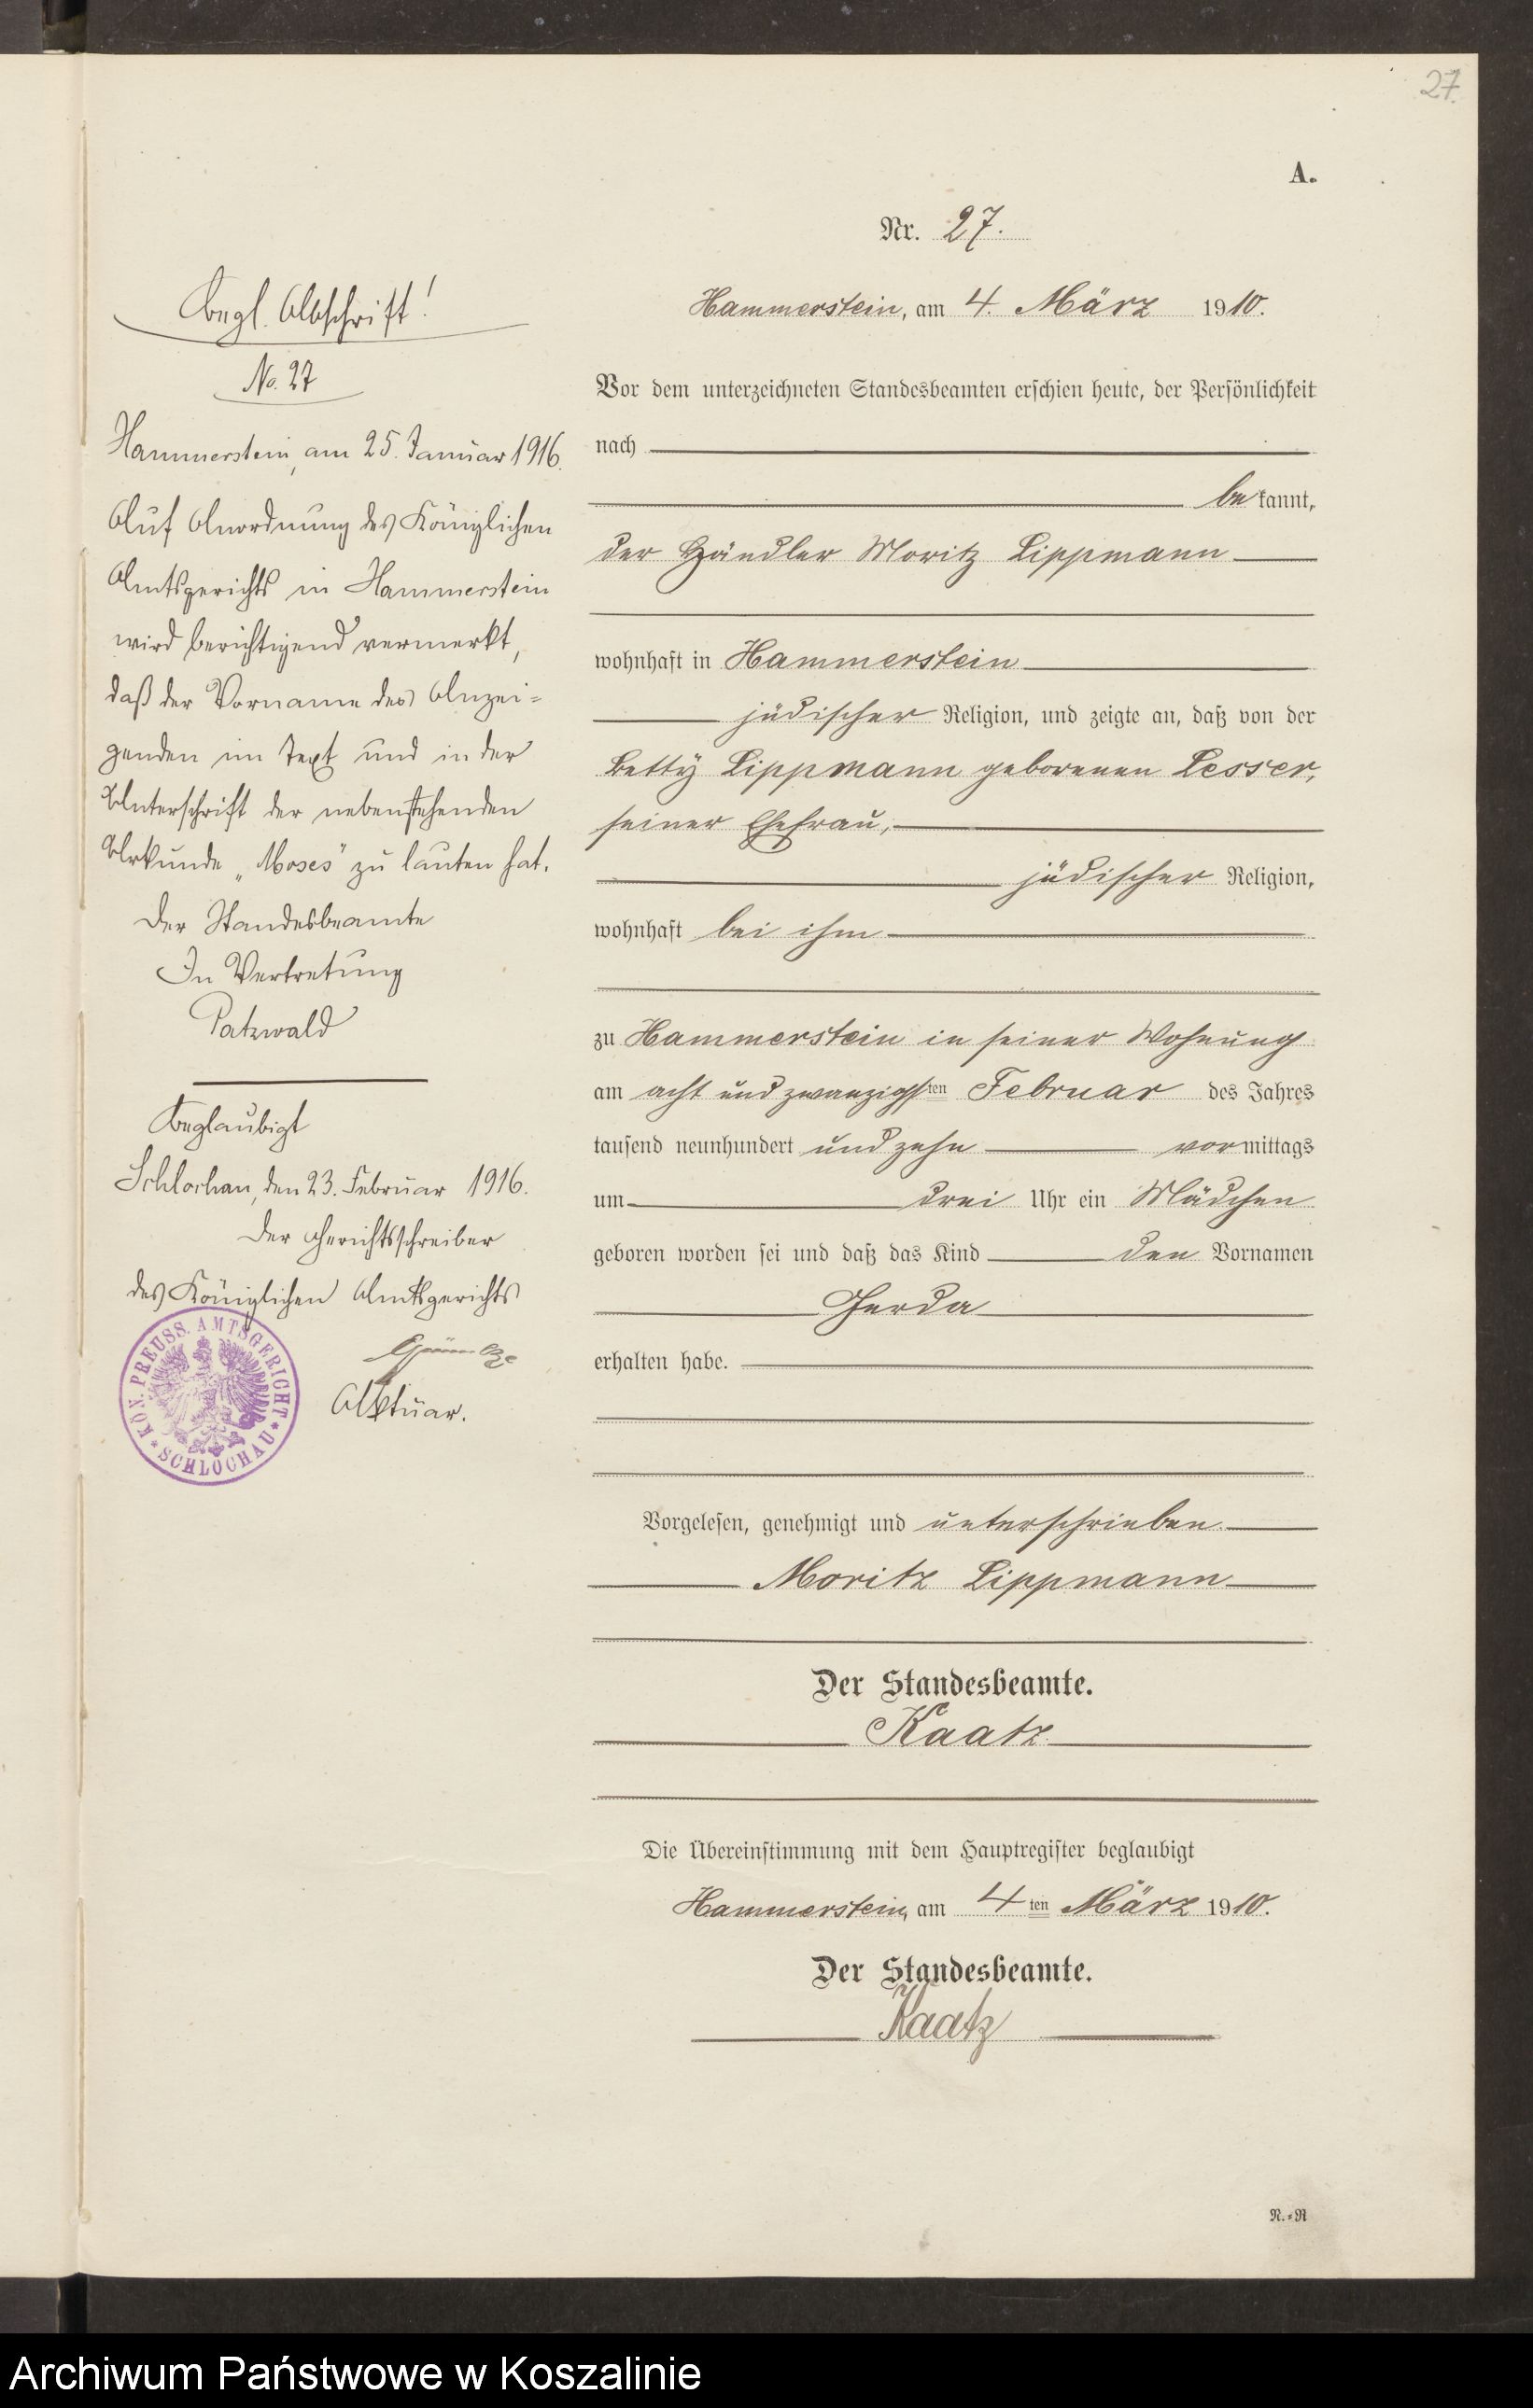 27.
A.
Nr. 27.
Hammerstein, am 4. März 1910.
Vor dem unterzeichneten Standesbeamten erschien heute, der Persönlichkeit
nach
bekannt,
der Händler Moritz Lippmann
wohnhaft in Hammerstein
jüdischer Religion, und zeigte an, daß von der
Betty Lippmann geborenen Lesser,
seiner Ehefrau,
jüdischer Religion,
wohnhaft bei ihm
zu Hammerstein in seiner Wohnung
am acht und zwanzigsten Februar des Jahres
tausend neunhundert und zehn vormittags
um drei Uhr ein Mädchen
geboren worden sei und daß das Kind den Vornamen
Gerda
erhalten habe.
Vorgelesen, genehmigt und unterschrieben.
Moritz Lippmann
Der Standesbeamte.
Kaatz
Die Übereinstimmung mit dem Hauptregister beglaubigt
Hammerstein, am 4ten März 1910.
Der Standesbeamte.
Kaatz
N.=R
Begl. Abschrift!
No. 27
Hammerstein, am 25. Januar 1916.
Auf Anordnung des Königlichen
Amtsgerichts in Hammerstein
wird berichtigend vermerkt,
daß der Vorname des Anzei=
genden im Text und in der
Unterschrift der nebenstehenden
Urkunde „Moses" zu lauten hat.
Der Standesbeamte
In Vertretung
Patzwald
Beglaubigt
Schlochau, den 23. Februar 1916.
Der Gerichtsschreiber
des Königlichen Amtsgerichts
Aktuar.
KÖN. PREUSS. AMTSGERICHT
* SCHLOCHAU *
Archiwum Państwowe w Koszalinie